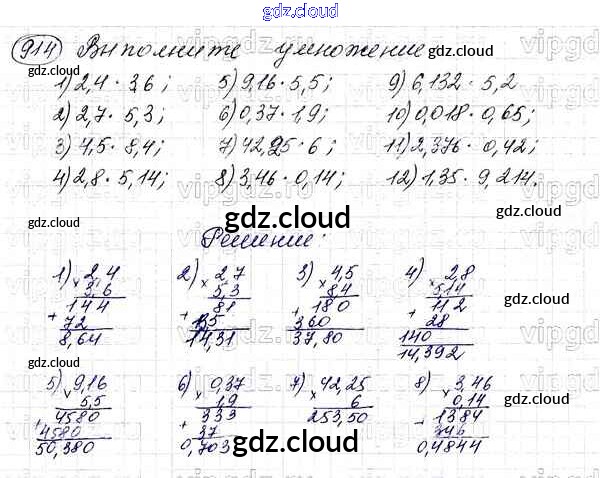 gdz.cloud
914 Выполните умножение
1) 2,4 · 3,6; 5) 9,16 · 5,5; 9) 6,132 · 5,2
2) 2,7 · 5,3; 6) 0,37 · 1,9; 10) 0,018 · 0,65;
3) 4,5 · 8,4; 7) 42,25 · 6; 11) 2,376 · 0,42;
4) 2,8 · 5,14; 8) 3,46 · 0,14; 12) 1,35 · 9,214.
Решение:
1) 2,4 2) 2,7 3) 4,5 4) 2,8
× 3,6 × 5,3 × 8,4 × 5,14
144 81 180 112
+ 72 + 135 + 360 + 28
8,64 14,31 37,80 140
14,392
5) 9,16 6) 0,37 7) 42,25 8) 3,46
× 5,5 × 1,9 × 6 × 0,14
4580 333 253,50 1384
+ 4580 + 37 + 346
50,380 0,703 0,4844
gdz.cloud